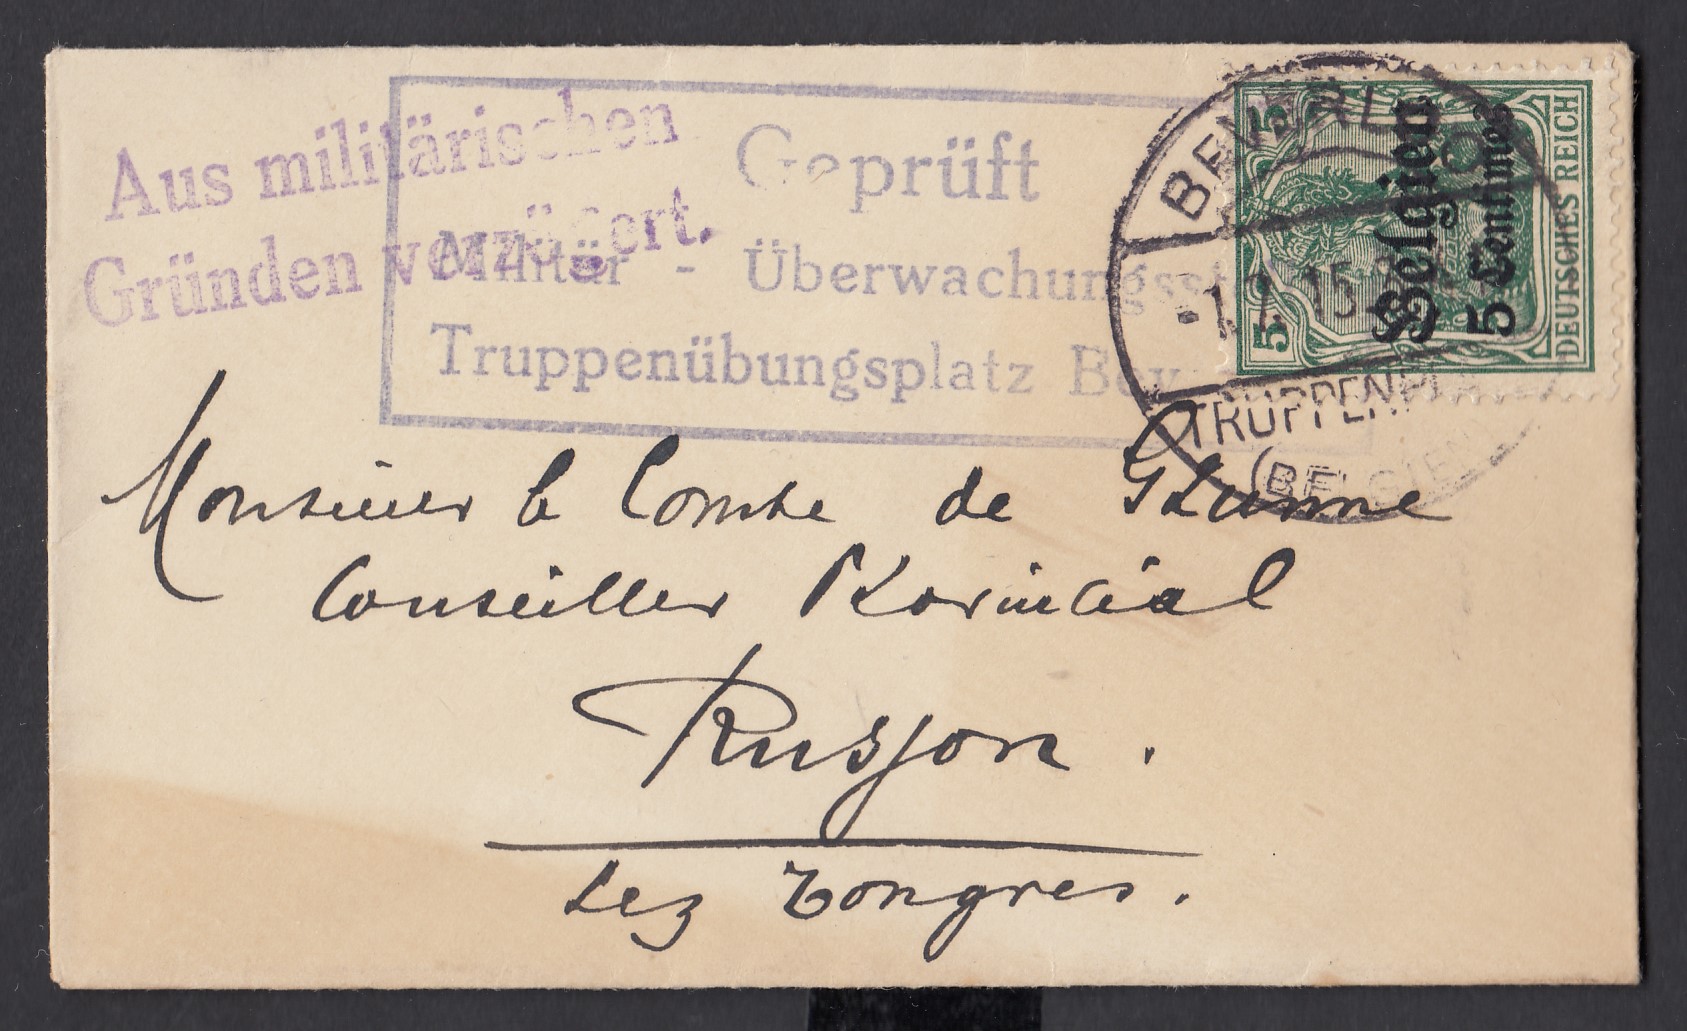 Aus militärischen
Gründen verzögert.
Geprüft
Militär - Überwachungsst
Truppenübungsplatz Bev
BEVERLOO
-1.7.15
TRUPPENPL
(BELGIEN)
5
5
DEUTSCHES REICH
Belgien
5 Centimes
Monsieur le Comte de
Conseiller Provincial
Russon.
Lez Tongres.